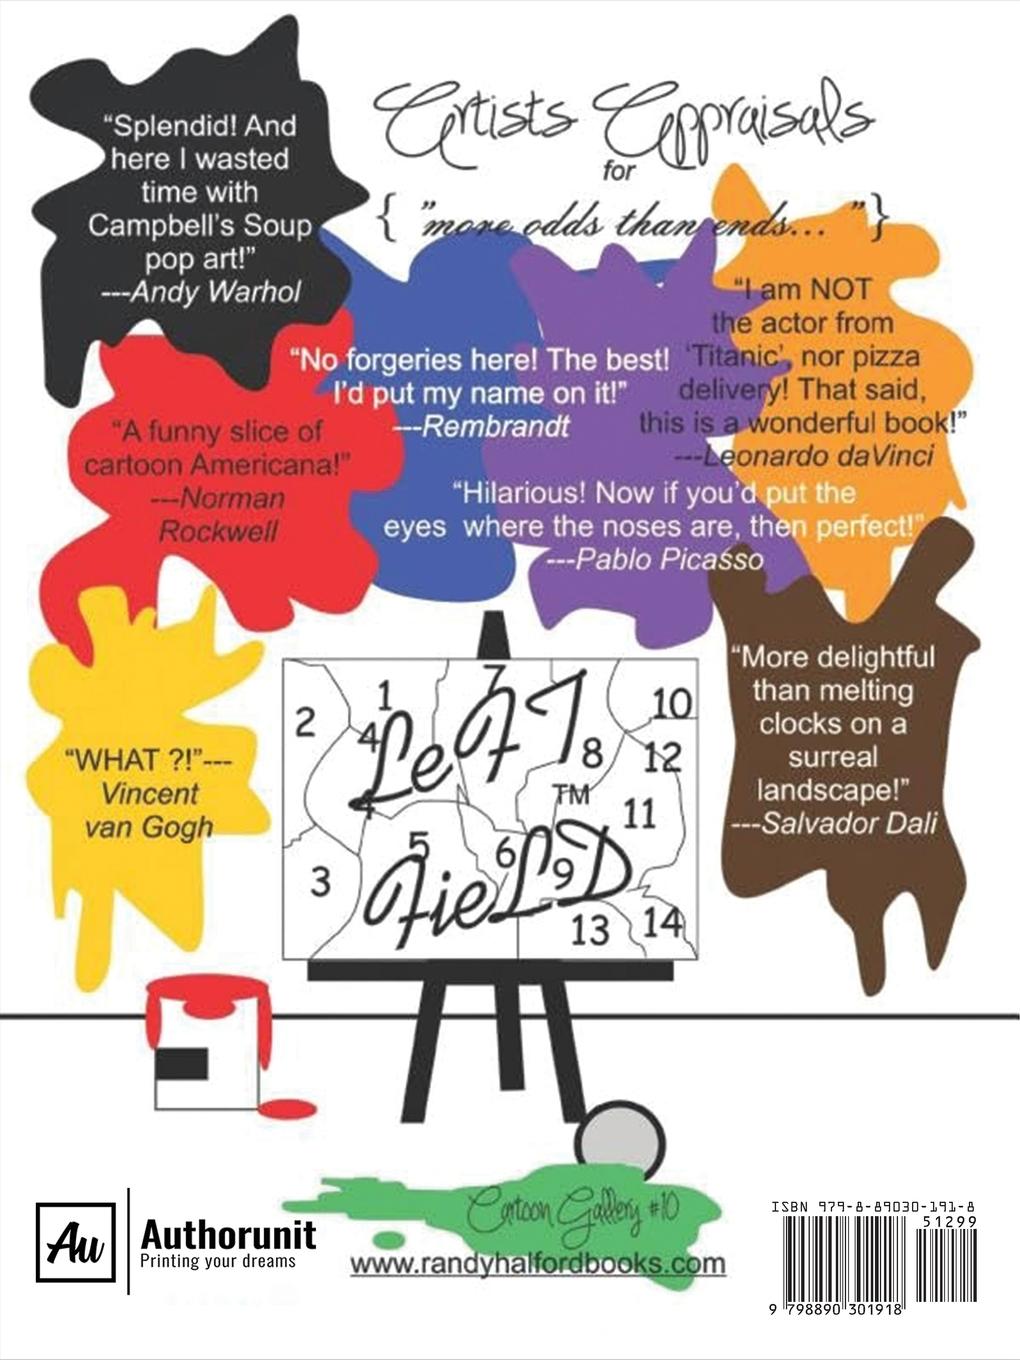 Artists Appraisals
for
{ "more odds than ends... " }
“Splendid! And
here I wasted
time with
Campbell’s Soup
pop art!”
---Andy Warhol
“I am NOT
the actor from
‘Titanic’, nor pizza
delivery! That said,
this is a wonderful book!”
---Leonardo daVinci
“No forgeries here! The best!
I’d put my name on it!”
---Rembrandt
“A funny slice of
cartoon Americana!”
---Norman
Rockwell
“Hilarious! Now if you’d put the
eyes where the noses are, then perfect!”
---Pablo Picasso
“WHAT ?!”---
Vincent
van Gogh
“More delightful
than melting
clocks on a
surreal
landscape!”
---Salvador Dali
7
1
2
10
4
LeFT
8
12
4
TM
11
5
6
3
FieLD
9
13
14
Cartoon Gallery #10
www.randyhalfordbooks.com
Au
Authorunit
Printing your dreams
ISBN 979-8-89030-191-8
51299
9 798890 301918